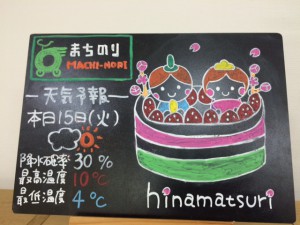 まちのり
MACHI-NORI
天気予報
本日15日(火)
降水確率 30%
最高温度 10℃
最低温度 4℃
hinamatsuri